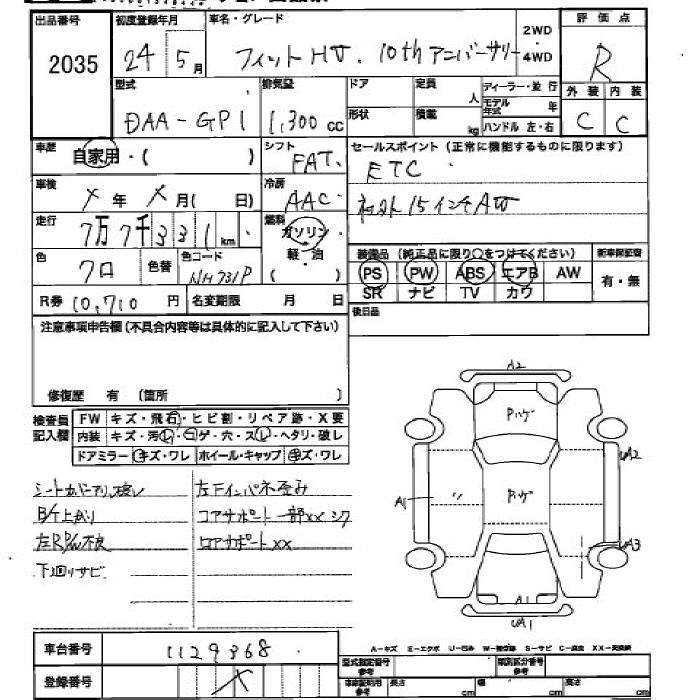 出品番号
2035
初度登録年月
24 5月
車名・グレード
フィットHV. 10thアニバーサリー
2WD
4WD
評価点
R
型式
DAA-GP1
排気量
1,300cc
ドア
定員
人
形状
積載
kg
ディーラー・並行
モデル年式
年
ハンドル 左・右
外装
内装
C
C
車歴
自家用・( )
シフト
FAT.
セールスポイント(正常に機能するものに限ります)
ETC
社外15インチAW
車検
メ年 メ月( 日)
冷房
AAC
走行
7万7千331km
燃料
ガソリン
軽・油
( )
装備品(純正品に限り○をつけてください)
新車保証書
PS PW ABS エアB AW
SR ナビ TV カワ
有・無
色
クロ
色替
色コード
NH731P
R券 10,710円
名変期限 月 日
後日品
注意事項申告欄(不具合内容等は具体的に記入して下さい)
修復歴 有 (箇所 )
検査員記入欄
FW キズ・飛石・ヒビ割・リペア跡・X要
内装 キズ・汚レ・コゲ・穴・スレ・ヘタリ・破レ
ドアミラー キズ・ワレ ホイール・キャップ キズ・ワレ
下廻りサビ
左インパネ歪み
コアサポート一部xx シワ
ロアサポートxx
A2
Pハゲ
A1
Pハゲ
UA2
UA3
A1
UA1
車台番号
1129368
登録番号
メ
A-キズ E-エクボ U-凹み S-サビ
型式指定番号
参考
類別区分番号
参考
長さ
cm
幅
cm
高さ
cm